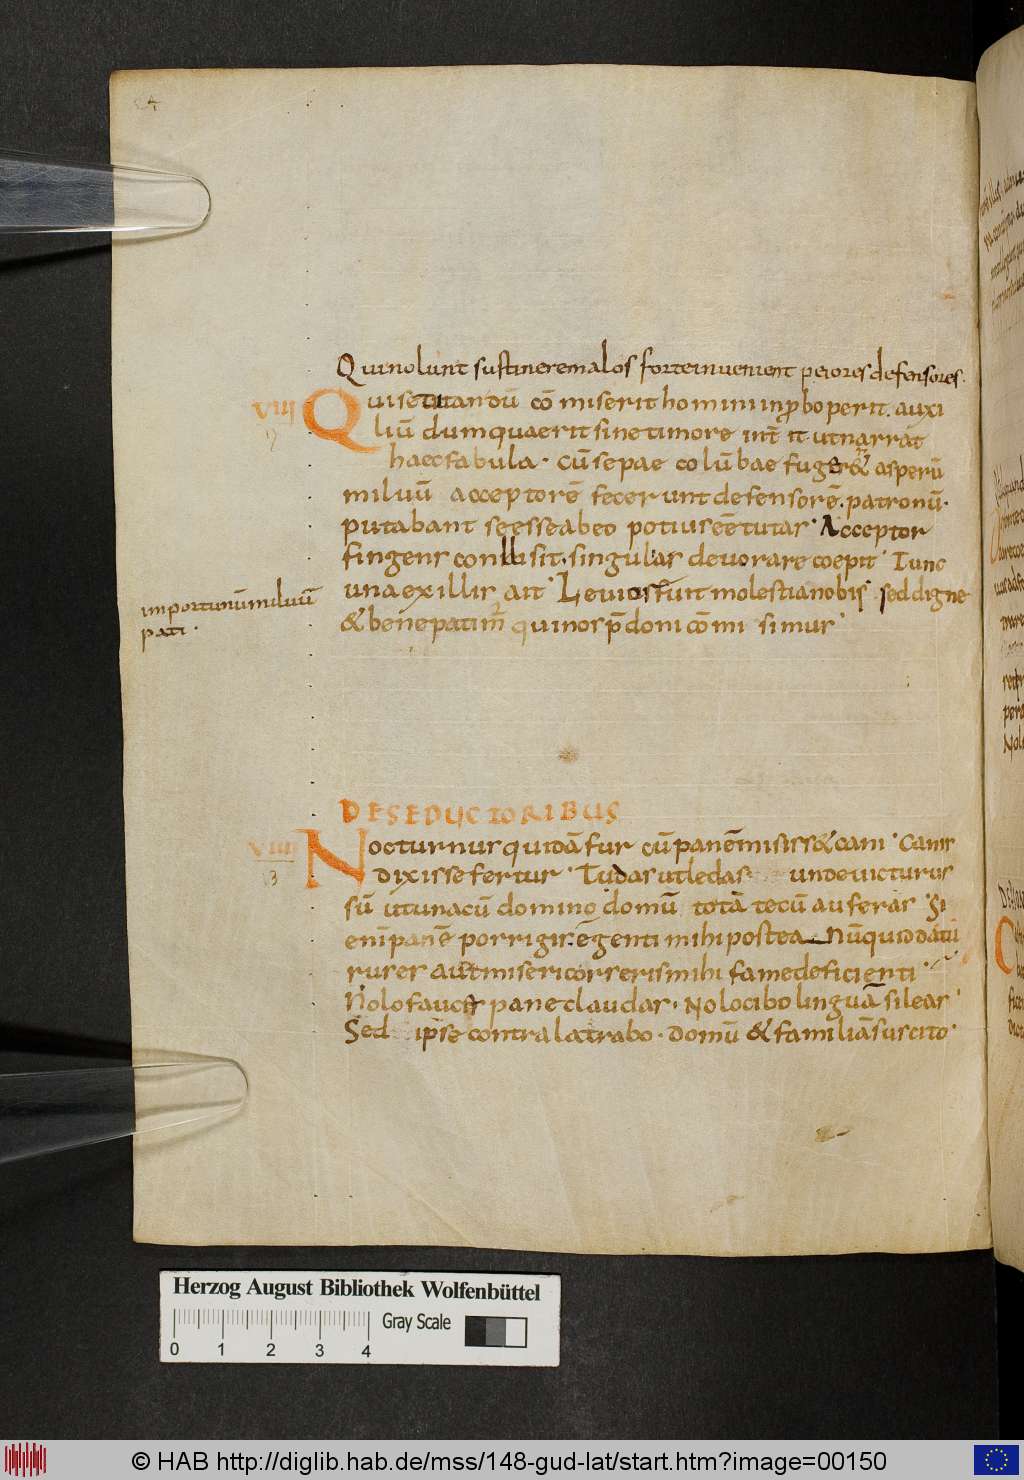 Qui nolunt sustinere malos forte invenient peiores defensores.
VIII Qui se tutandū cō miserit homini inprobo perit. auxi
liū dum quaerit sine timore int̄ it ut narrat
haec fabula. Cū sepae colūbae fuger& asperū
miluū acceptorē fecerunt defensorē. patronū.
putabant se esse ab eo potius eē tutas. Accceptor
fingens conllusit. singulas devorare coepit. Tunc
una ex illis ait. Levius fuit molestia nobis sed digne
importunū miluū
pati.
& bene patim̄ qui nos p̄doni cōmi simus.
DE SEDUCTORIBUS
VIIII Nocturnus quidā fur cū panē misiss& cani. Canis
13
dixisse fertur. Tu das ut ledas unde victurus
sū ut una cū domino domū totā tecū auferas. Si
enī panē porrigis egenti mihi postea Nūquid datu
rus es aut misericors eris mihi fame deficienti.
Nolo fauces pane claudas. Nolo cibo linguā sileas.
Sed ipse contra latrabo. domū & familiā suscito.
Herzog August Bibliothek Wolfenbüttel
Gray Scale
0 1 2 3 4
© HAB http://diglib.hab.de/mss/148-gud-lat/start.htm?image=00150